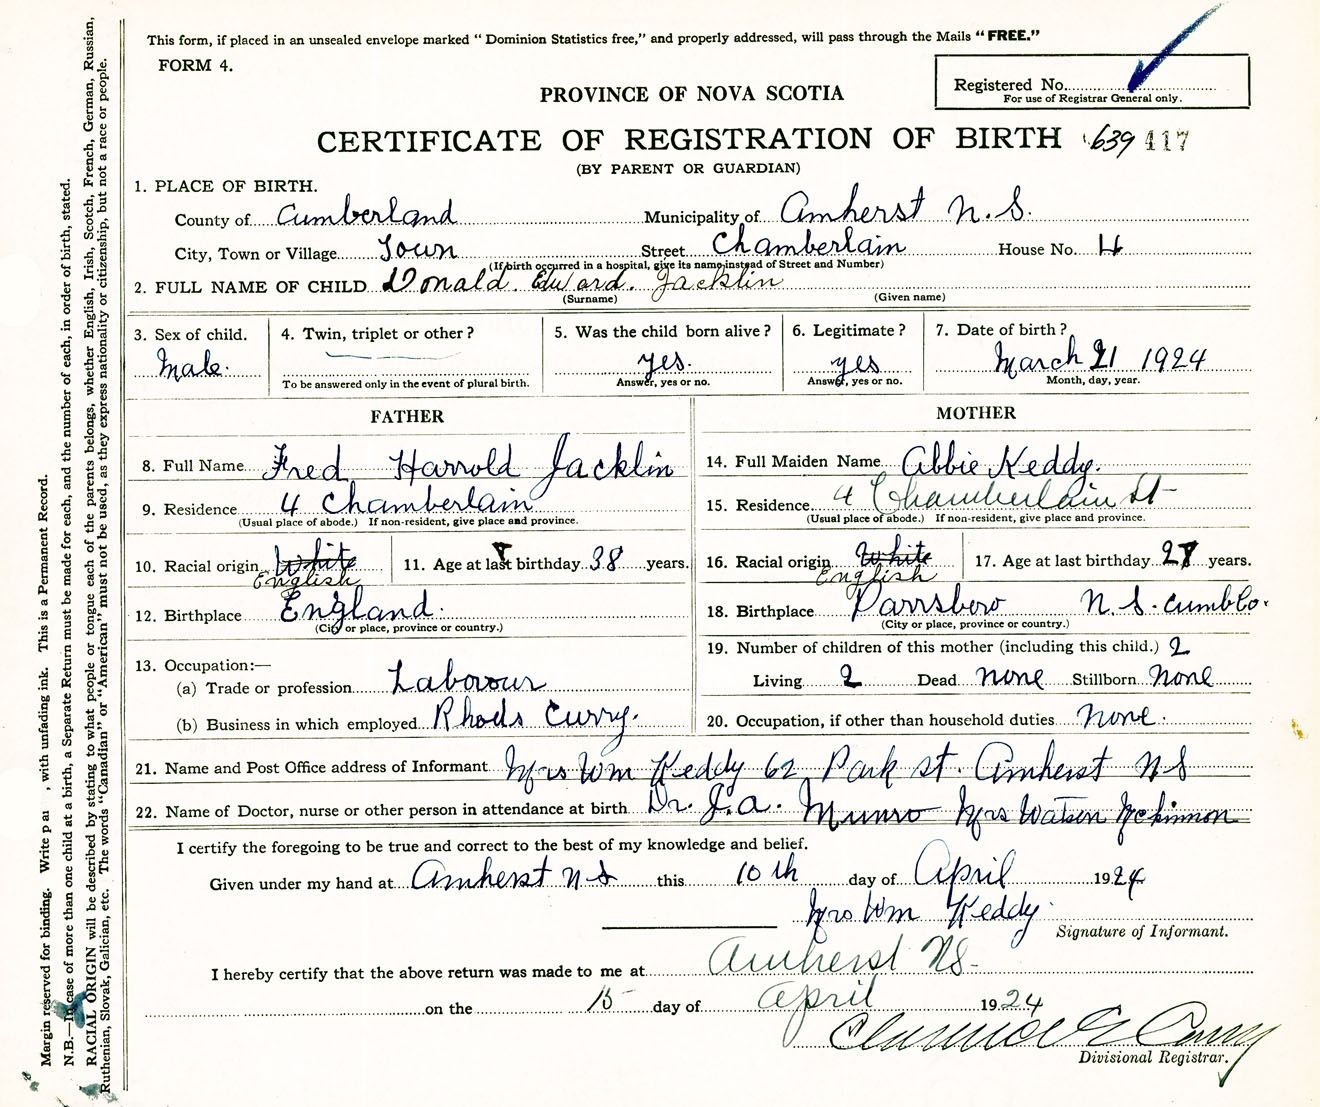 This form, if placed in an unsealed envelope marked " Dominion Statistics free," and properly addressed, will pass through the Mails "FREE."
FORM 4.
Registered No.
For use of Registrar General only.
PROVINCE OF NOVA SCOTIA
CERTIFICATE OF REGISTRATION OF BIRTH 639 417
(BY PARENT OR GUARDIAN)
1. PLACE OF BIRTH.
County of Cumberland Municipality of Amherst N.S.
City, Town or Village Town Street Chamberlain House No. 4
(If birth occurred in a hospital, give its name instead of Street and Number)
2. FULL NAME OF CHILD Donald Edward. Jacklin
(Surname) (Given name)
3. Sex of child. 4. Twin, triplet or other? 5. Was the child born alive? 6. Legitimate? 7. Date of birth?
Male. yes. yes March 21 1924
To be answered only in the event of plural birth. Answer, yes or no. Answer, yes or no. Month, day, year.
FATHER
8. Full Name Fred Harrold Jacklin
9. Residence 4 Chamberlain
(Usual place of abode.) If non-resident, give place and province.
10. Racial origin White 11. Age at last birthday 38 years.
English
12. Birthplace England.
(City or place, province or country.)
13. Occupation:—
(a) Trade or profession Labovour
(b) Business in which employed Rhods Curry.
MOTHER
14. Full Maiden Name Abbie Keddy.
15. Residence 4 Chamberlain St
(Usual place of abode.) If non-resident, give place and province.
16. Racial origin White 17. Age at last birthday 27 years.
English
18. Birthplace Parrsboro N.S. Cumb Co.
(City or place, province or country.)
19. Number of children of this mother (including this child.) 2
Living 2 Dead none Stillborn None
20. Occupation, if other than household duties None.
21. Name and Post Office address of Informant Mrs Wm Keddy 62 Park st. Amherst N S
22. Name of Doctor, nurse or other person in attendance at birth Dr. J.A. Munro Mrs Watson Mckinnon
I certify the foregoing to be true and correct to the best of my knowledge and belief.
Given under my hand at Amherst N S this 10th day of April 1924
Mrs Wm Keddy.
Signature of Informant.
I hereby certify that the above return was made to me at Amherst NS-
on the 15 day of April 1924
Divisional Registrar.
Margin reserved for binding. Write , with unfading ink. This is a Permanent Record.
N.B.—In case of more than one child at a birth, a Separate Return must be made for each, and the number of each, in order of birth, stated.
RACIAL ORIGIN will be described by stating to what people or tongue each of the parents belongs, whether English, Irish, Scotch, French, German, Russian,
Ruthenian, Slovak, Galician, etc. The words "Canadian" or "American" must not be used, as they express nationality or citizenship, but not a race or people.